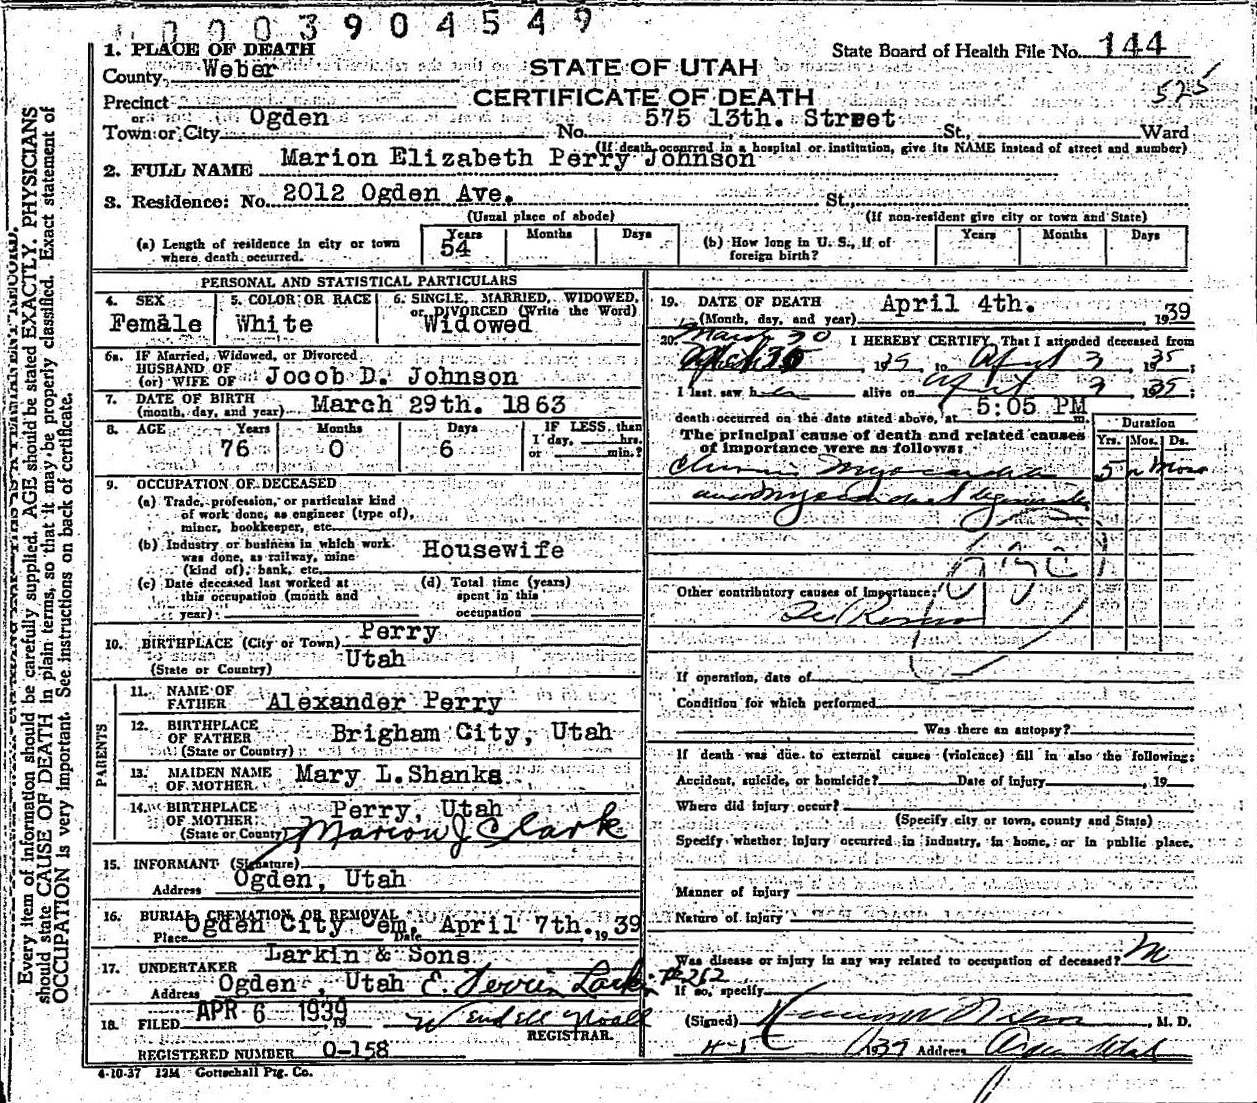 0003904549
1. PLACE OF DEATH
State Board of Health File No. 144
County Weber
STATE OF UTAH
CERTIFICATE OF DEATH
525
Precinct
or
Town or City Ogden No. 575 13th. Street St., Ward
(If death occurred in a hospital or institution, give its NAME instead of street and number)
2. FULL NAME Marion Elizabeth Perry Johnson
3. Residence: No. 2012 Ogden Ave. St.,
(Usual place of abode) (If non-resident give city or town and State)
(a) Length of residence in city or town where death occurred. Years 54 Months Days
(b) How long in U. S., if of foreign birth? Years Months Days
PERSONAL AND STATISTICAL PARTICULARS
4. SEX Female
5. COLOR OR RACE White
6. SINGLE, MARRIED, WIDOWED, or DIVORCED (Write the Word) Widowed
6a. IF Married, Widowed, or Divorced
HUSBAND OF
(or) WIFE OF Jocob D. Johnson
7. DATE OF BIRTH
(month, day, and year) March 29th. 1863
8. AGE Years 76 Months 0 Days 6 IF LESS than 1 day, hrs. or min.?
9. OCCUPATION OF DECEASED
(a) Trade, profession, or particular kind
of work done, as engineer (type of),
miner, bookkeeper, etc.
(b) Industry or business in which work
was done, as railway, mine
(kind of), bank, etc. Housewife
(c) Date deceased last worked at
this occupation (month and
year)
(d) Total time (years)
spent in this
occupation
10. BIRTHPLACE (City or Town) Perry
(State or Country) Utah
PARENTS
11. NAME OF
FATHER Alexander Perry
12. BIRTHPLACE
OF FATHER Brigham City, Utah
(State or Country)
13. MAIDEN NAME
OF MOTHER Mary L. Shanks
14. BIRTHPLACE
OF MOTHER Perry, Utah
(State or Country)
15. INFORMANT (Signature) Marion J Clark
Address Ogden, Utah
16. BURIAL, CREMATION, OR REMOVAL
Place Ogden City Cem. Date April 7th. 1939
17. UNDERTAKER Larkin & Sons
Address Ogden, Utah E. Larkin #262
18. FILED APR 6 1939 Wendell Noall
REGISTRAR.
REGISTERED NUMBER 0-158
4-10-37 12M Gottschall Ptg. Co.
19. DATE OF DEATH
(Month, day, and year) April 4th. 1939
20. I HEREBY CERTIFY, That I attended deceased from
March 30
19 , to April 3, 19 ;
I last saw h alive on April , 19 ;
death occurred on the date stated above, at 5:05 PM m.
The principal cause of death and related causes
of importance were as follows:
Duration
Yrs. Mos. Ds.
Chronic Myocarditis 5
Other contributory causes of importance:
If operation, date of
Condition for which performed
Was there an autopsy?
If death was due to external causes (violence) fill in also the following:
Accident, suicide, or homicide? Date of injury , 19
Where did injury occur?
(Specify city or town, county and State)
Specify whether injury occurred in industry, in home, or in public place.
Manner of injury
Nature of injury
Was disease or injury in any way related to occupation of deceased?
If so, specify
(Signed) , M. D.
4-5 1939 Address Ogden Utah
Every item of information should be carefully supplied. AGE should be stated EXACTLY. PHYSICIANS
should state CAUSE OF DEATH in plain terms, so that it may be properly classified. Exact statement of
OCCUPATION is very important. See instructions on back of certificate.